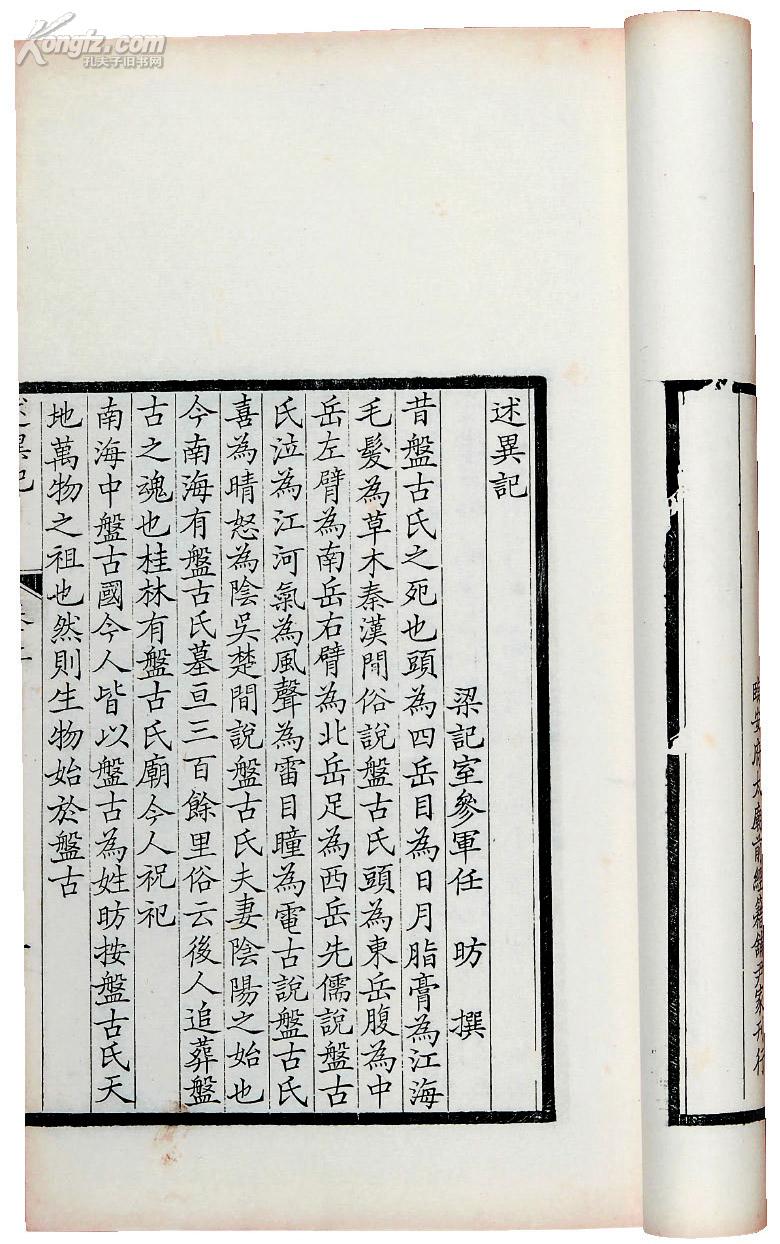 Kongfz.com
孔夫子旧书网
臨安府太廟前經籍鋪尹家刊行
述異記
梁記室參軍任昉撰
昔盤古氏之死也頭為四岳目為日月脂膏為江海
毛髮為草木秦漢間俗說盤古氏頭為東岳腹為中
岳左臂為南岳右臂為北岳足為西岳先儒說盤古
氏泣為江河氣為風聲為雷目瞳為電古說盤古氏
喜為晴怒為陰吳楚間說盤古氏夫妻陰陽之始也
今南海有盤古氏墓亘三百餘里俗云後人追葬盤
古之魂也桂林有盤古氏廟今人祝祀
南海中盤古國今人皆以盤古為姓昉按盤古氏天
地萬物之祖也然則生物始於盤古
述異記